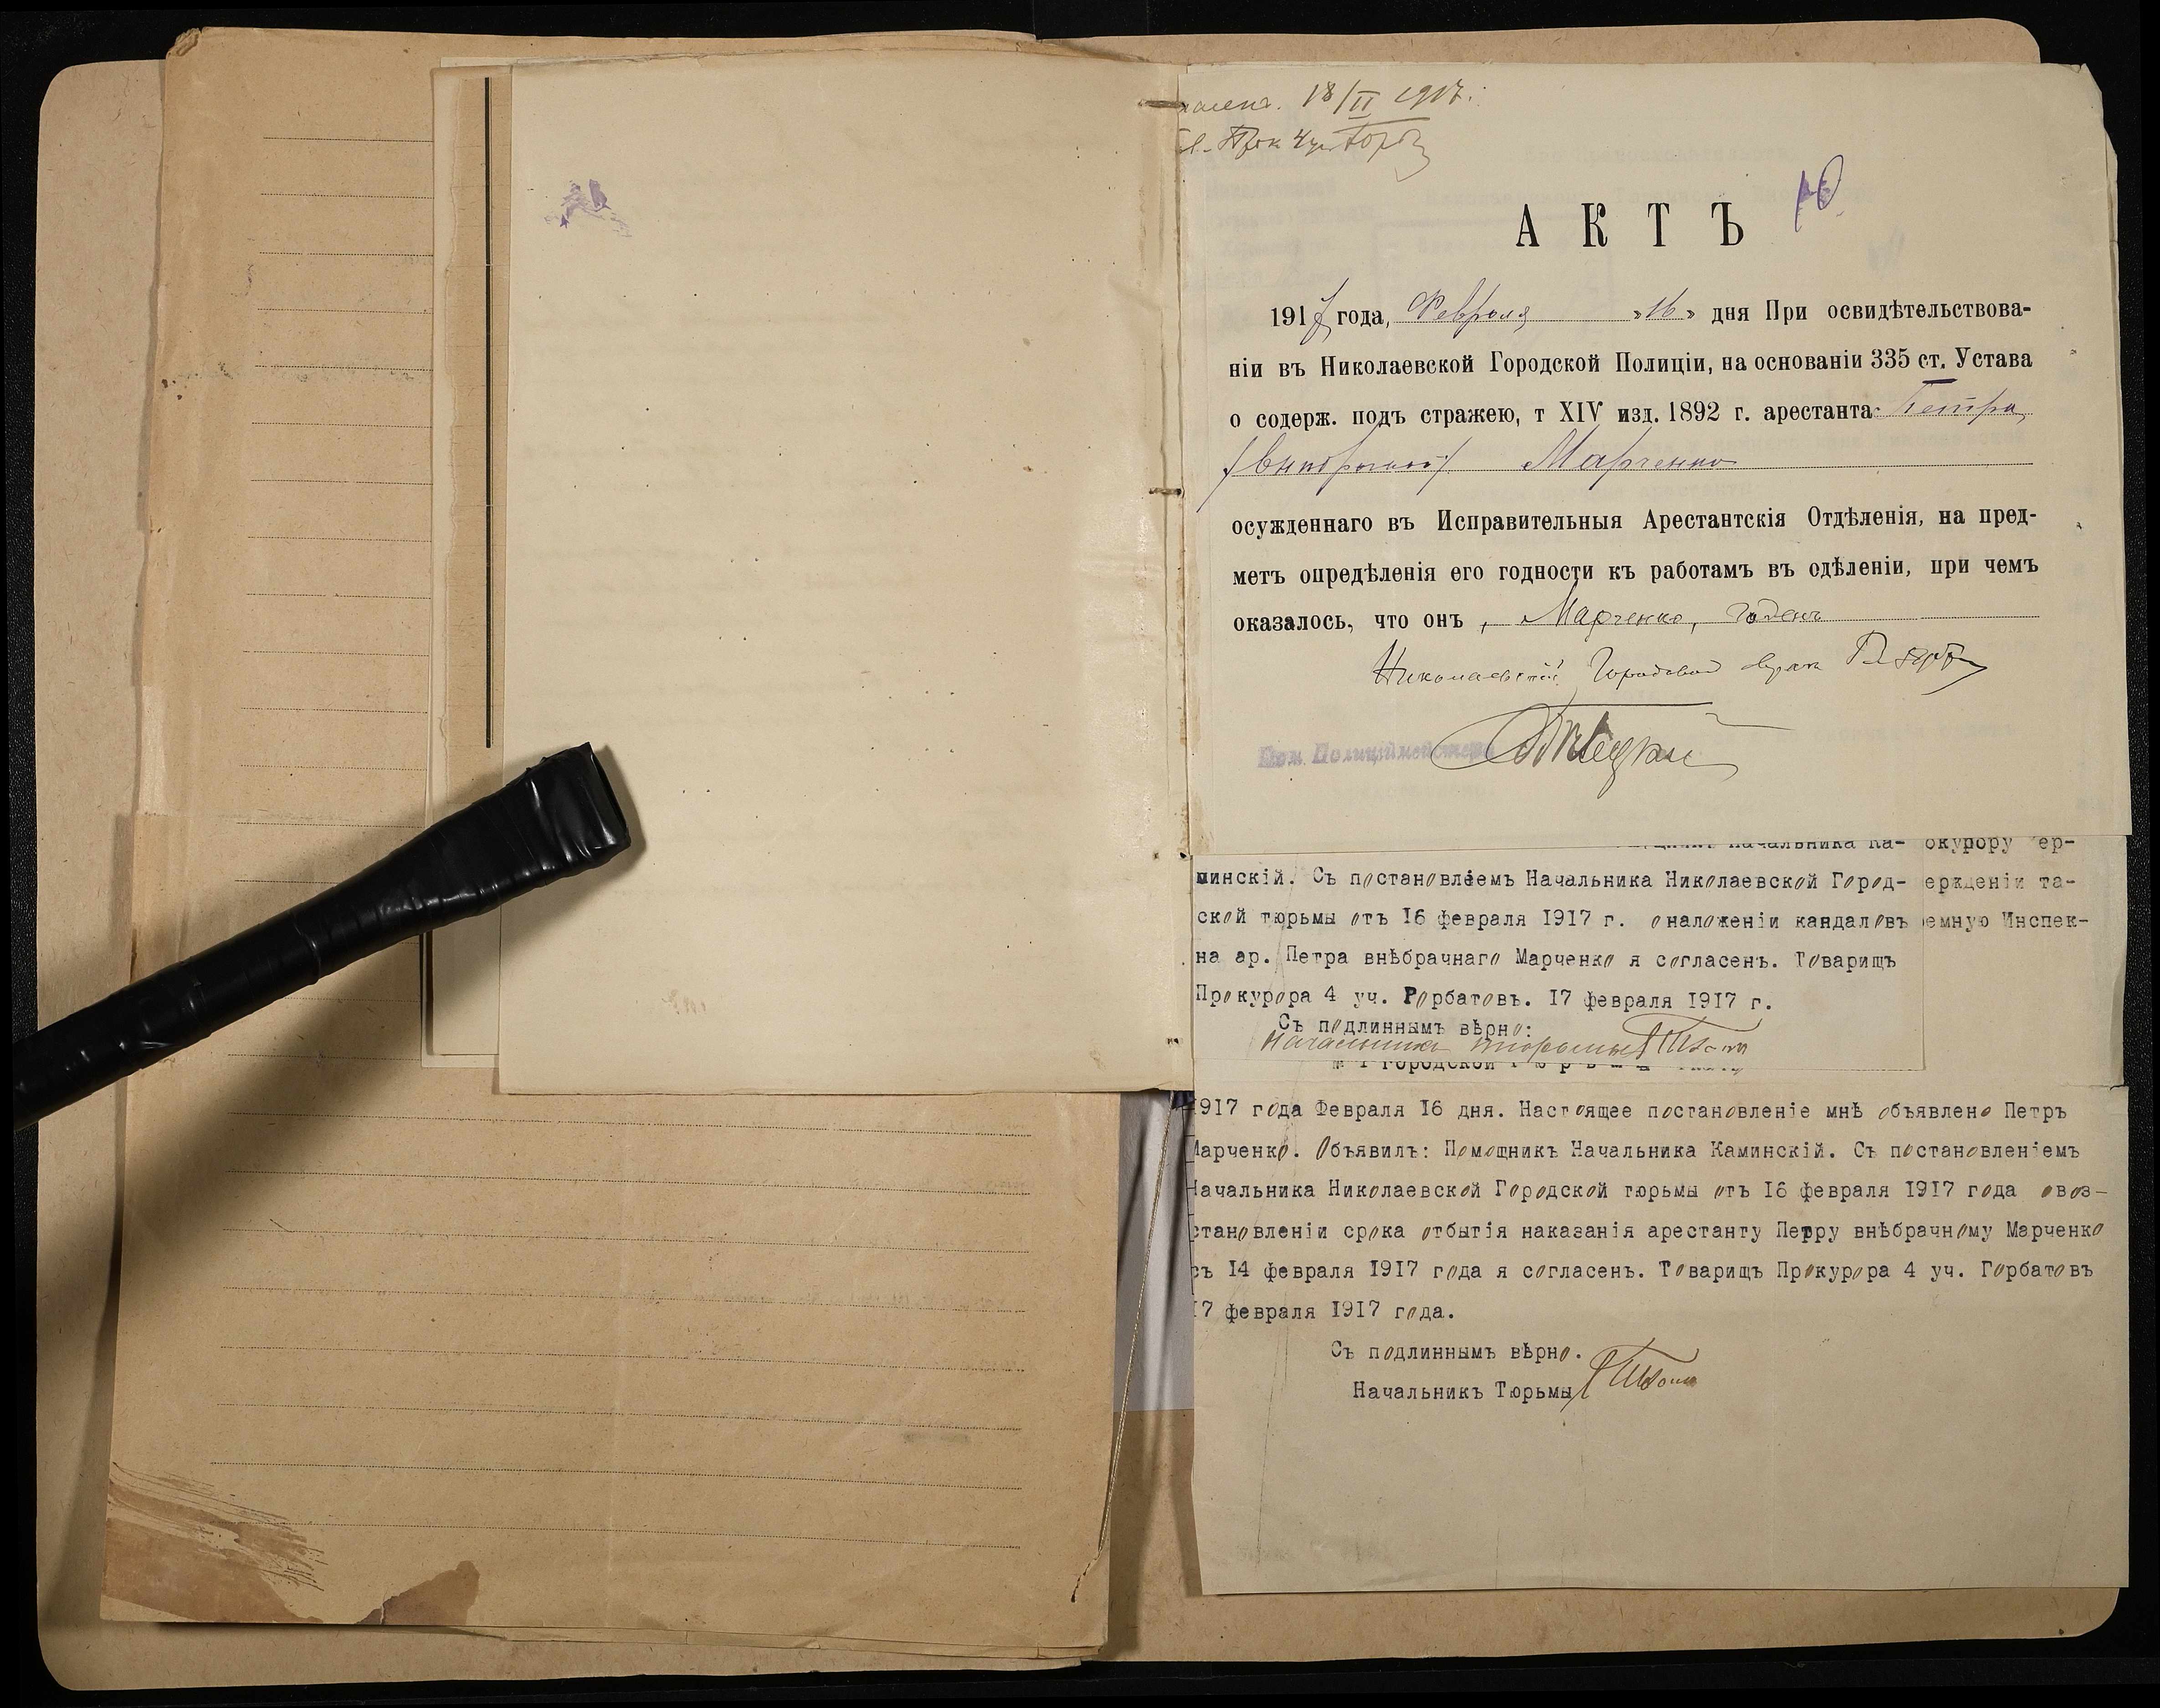 18/II 1917 г.
10
АКТЪ
1917 года, Февраля „16“ дня При освидѣтельствова-
ніи въ Николаевской Городской Полиціи, на основаніи 335 ст. Устава
о содерж. подъ стражею, т XIV изд. 1892 г. арестанта Петра
Марченко
осужденнаго въ Исправительныя Арестантскія Отдѣленія, на пред-
метъ опредѣленія его годности къ работамъ въ одѣленіи, при чемъ
оказалось, что онъ, Марченко, годенъ
Николаевскій Городовой врач
Пом. Полиціймейстера
Начальника Ка- окурору
минскій. Съ постановлѣемъ Начальника Николаевской Город- ержденіи та-
ской тюрьмы отъ 16 февраля 1917 г. о наложеніи кандаловъ емную Инспек-
на ар. Петра внѣбрачнаго Марченко я согласенъ. Товарищъ
Прокурора 4 уч. Горбатовъ. 17 февраля 1917 г.
Съ подлиннымъ вѣрно:
Начальникъ тюрьмы
Городской
1917 года Февраля 16 дня. Настоящее постановленіе мнѣ объявлено Петръ
Марченко. Объявилъ: Помощникъ Начальника Каминскій. Съ постановленіемъ
Начальника Николаевской Городской тюрьмы отъ 16 февраля 1917 года о воз-
становленіи срока отбытія наказанія арестанту Петру внѣбрачному Марченко
съ 14 февраля 1917 года я согласенъ. Товарищъ Прокурора 4 уч. Горбатовъ
17 февраля 1917 года.
Съ подлиннымъ вѣрно.
Начальникъ Тюрьмы